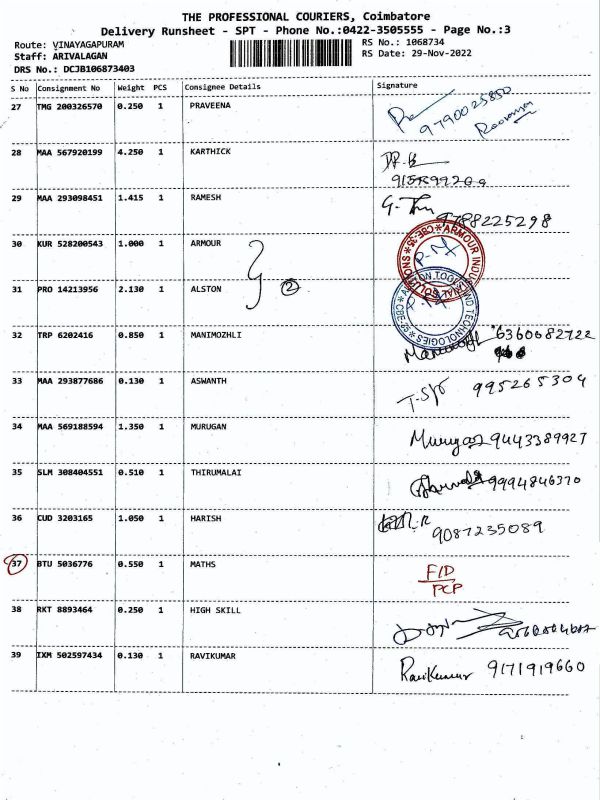 THE PROFESSIONAL COURIERS, Coimbatore
Delivery Runsheet - SPT - Phone No.:0422-3505555 - Page No.:3
Route: VINAYAGAPURAM
RS No.: 1068734
Staff: ARIVALAGAN
RS Date: 29-Nov-2022
DRS No.: DCJB106873403
S No Consignment No Weight PCS Consignee Details Signature
27 TMG 200326570 0.250 1 PRAVEENA
9790025850
28 MAA 567920199 4.250 1 KARTHICK
29 MAA 293098451 1.415 1 RAMESH
9788225298
30 KUR 528200543 1.000 1 ARMOUR
31 PRO 14213956 2.130 1 ALSTON
2
32 TRP 6202416 0.850 1 MANIMOZHLI 6360682722
33 MAA 293877686 0.130 1 ASWANTH 995265304
34 MAA 569188594 1.350 1 MURUGAN Murugan 9443389927
35 SLM 308404551 0.510 1 THIRUMALAI 9994846370
36 CUD 3203165 1.050 1 HARISH
9087235089
37 BTU 5036776 0.550 1 MATHS F/D
PCP
38 RKT 8893464 0.250 1 HIGH SKILL
39 IXM 502597434 0.130 1 RAVIKUMAR RaviKumar 9171919660